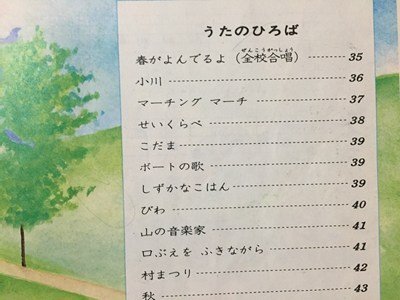 うたのひろば
春がよんでるよ（全校合唱） 35
ぜんこうがっしょう
小川 36
マーチング マーチ 37
せいくらべ 38
こだま 39
ボートの歌 39
しずかなこはん 39
びわ 40
山の音楽家 41
口ぶえを ふきながら 41
村まつり 42
秋 43